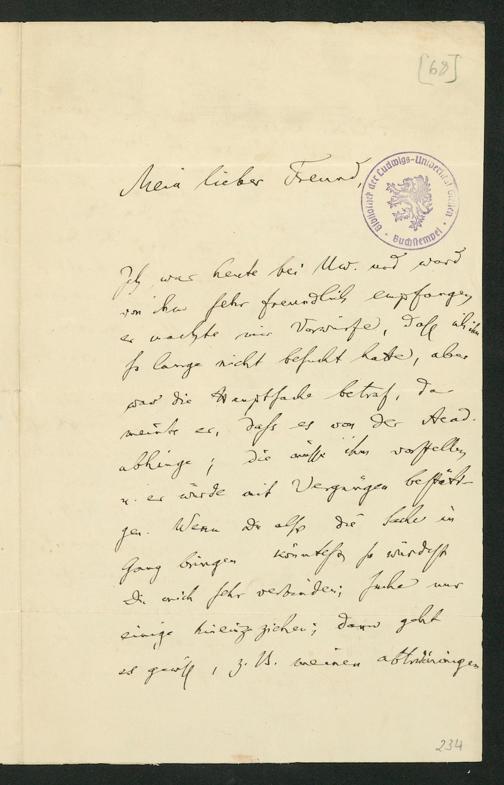 [68]
Mein lieber Freund,
Bibliothek der Ludwigs-Universität Giessen
Buchstempel
Ich war heute bei Uw. und ward
von ihm sehr freundlich empfangen
er machte mir Vorwürfe, daß ich ihn
so lange nicht besucht hatte, aber
was die Hauptsache betraf, da
meinte er, daß es von der Acad.
abhinge; die müsse ihm vorstellen
u. er würde mit Vergnügen bestäti-
gen. Wenn Du also die Sache in
Gang bringen könntest so würdest
Du mich sehr verbinden; suche nur
einige hineinzuziehen; dann geht
es gewiß, z. B. meinen abtrünnigen
234